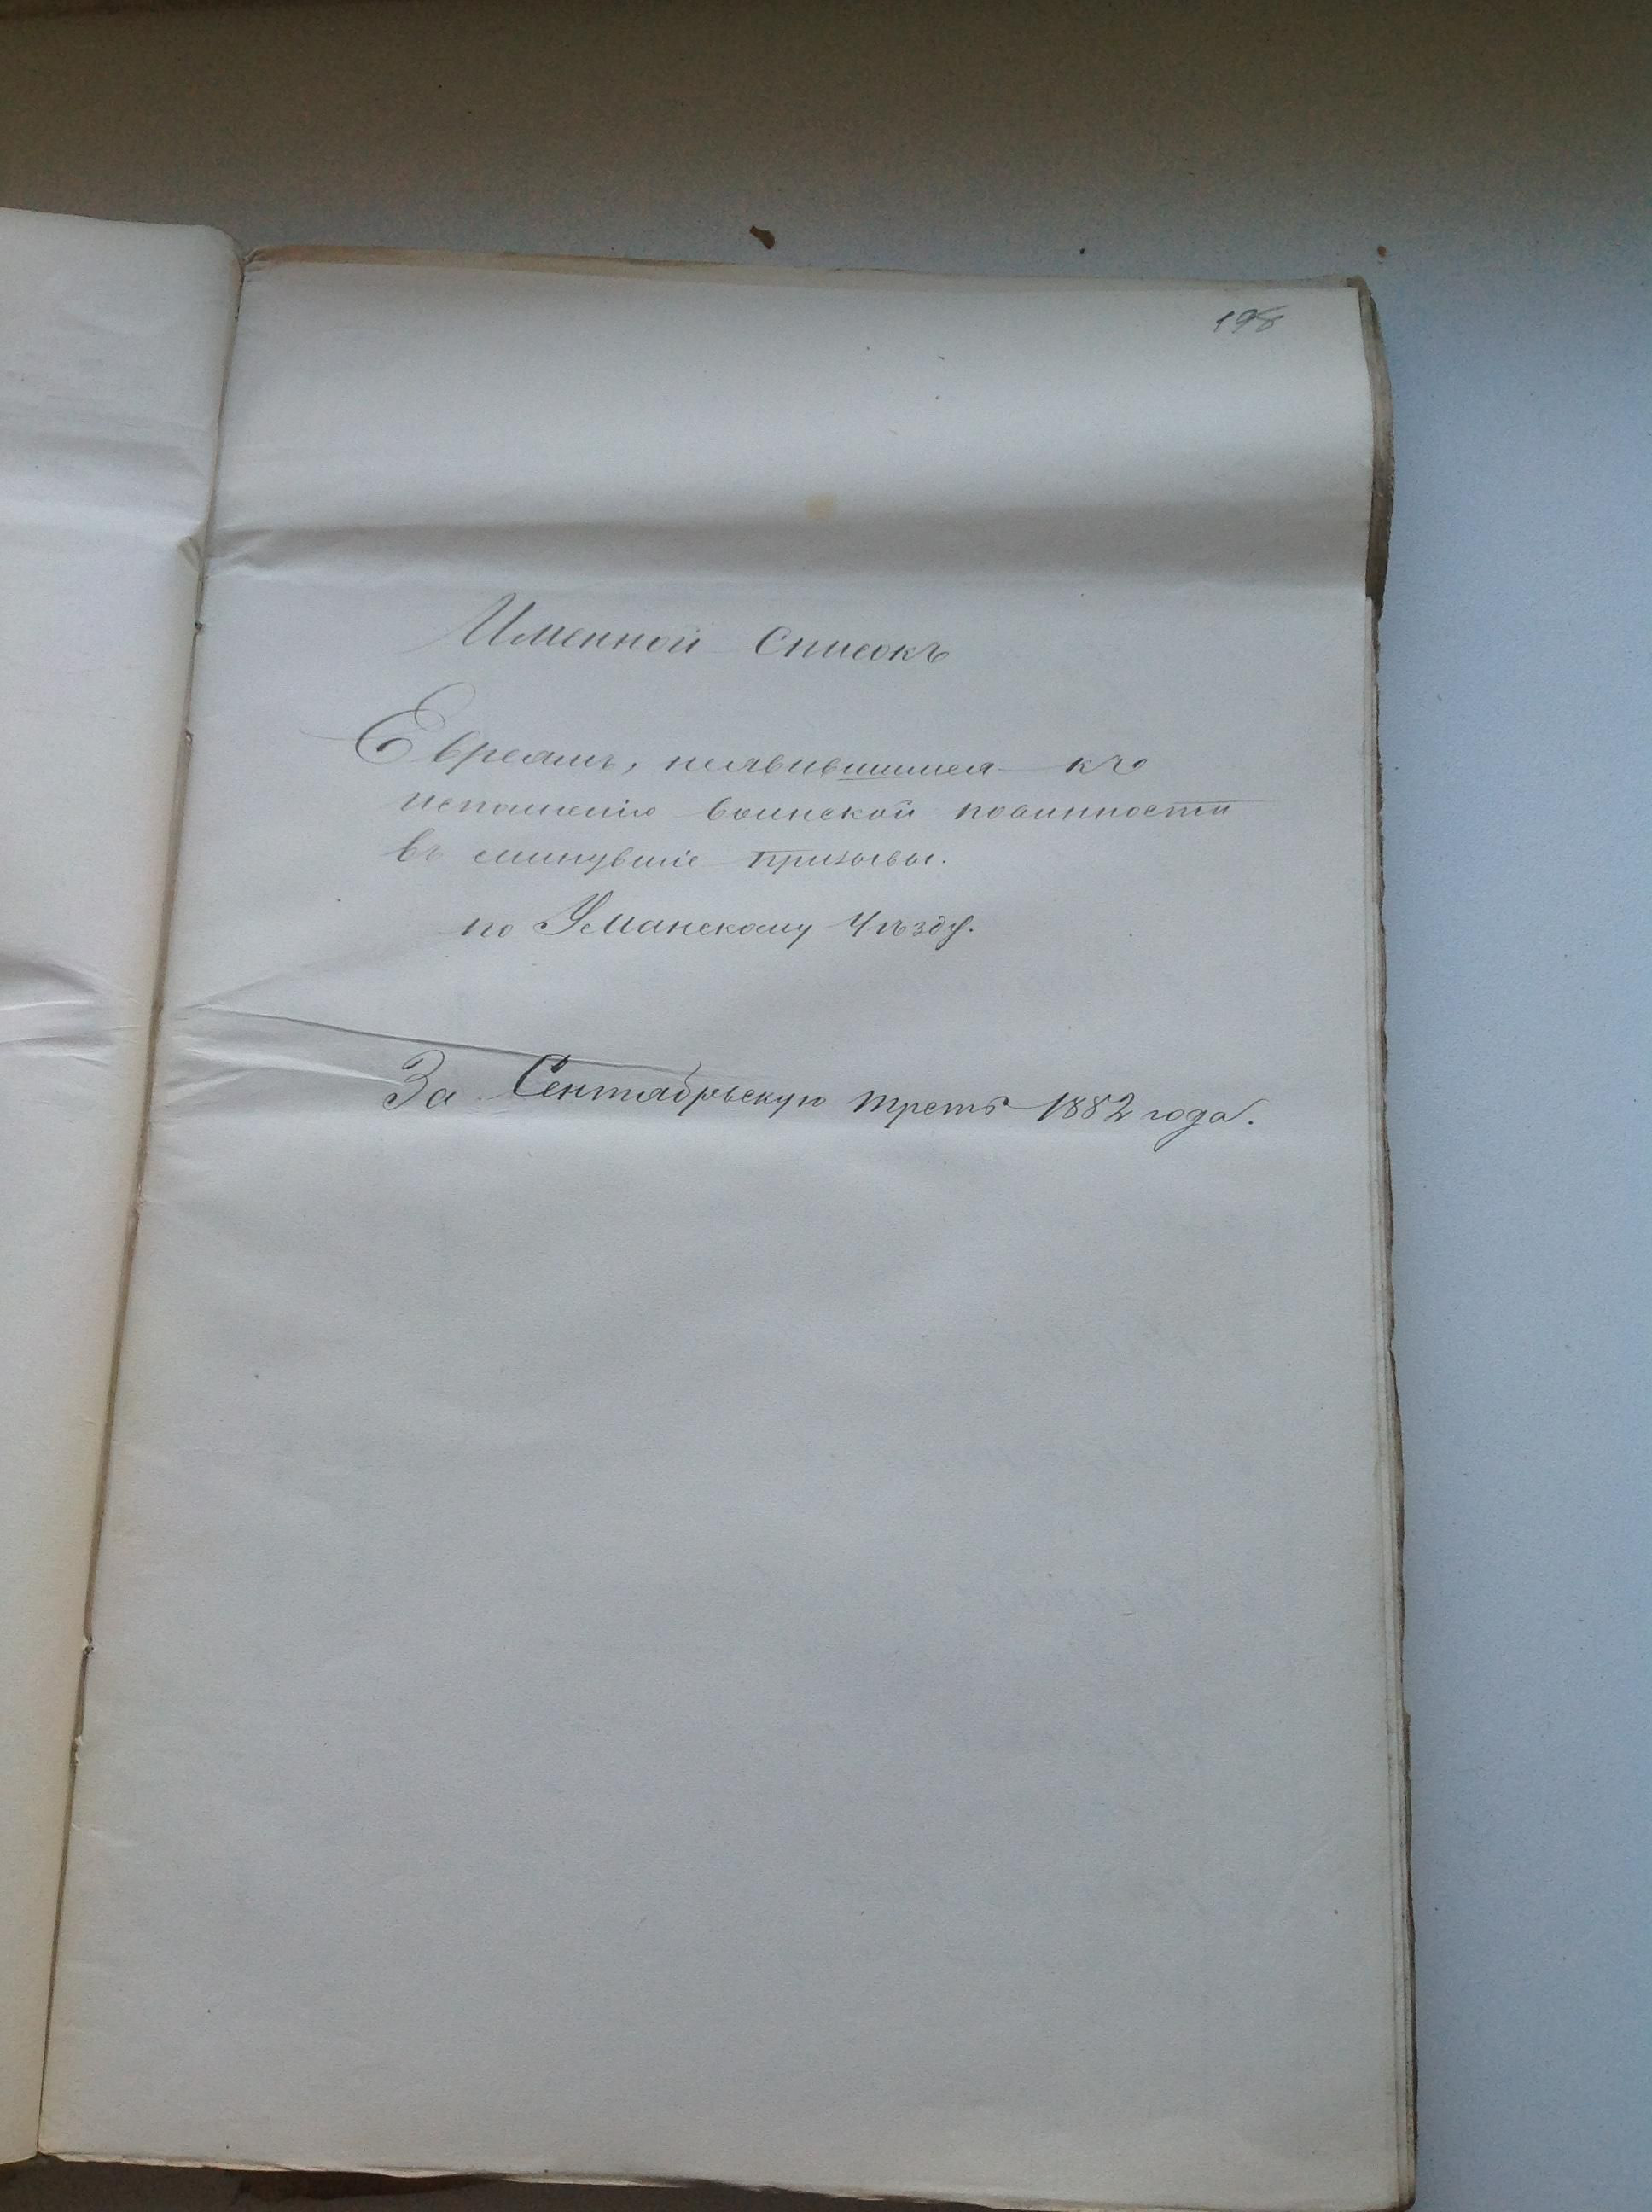 198
Именной Списокъ
Евреямъ, неявившимся къ
исполненію воинской повинности
въ минувшіе призывы.
по Уманскому Уѣзду.
За Сентябрьскую треть 1882 года.